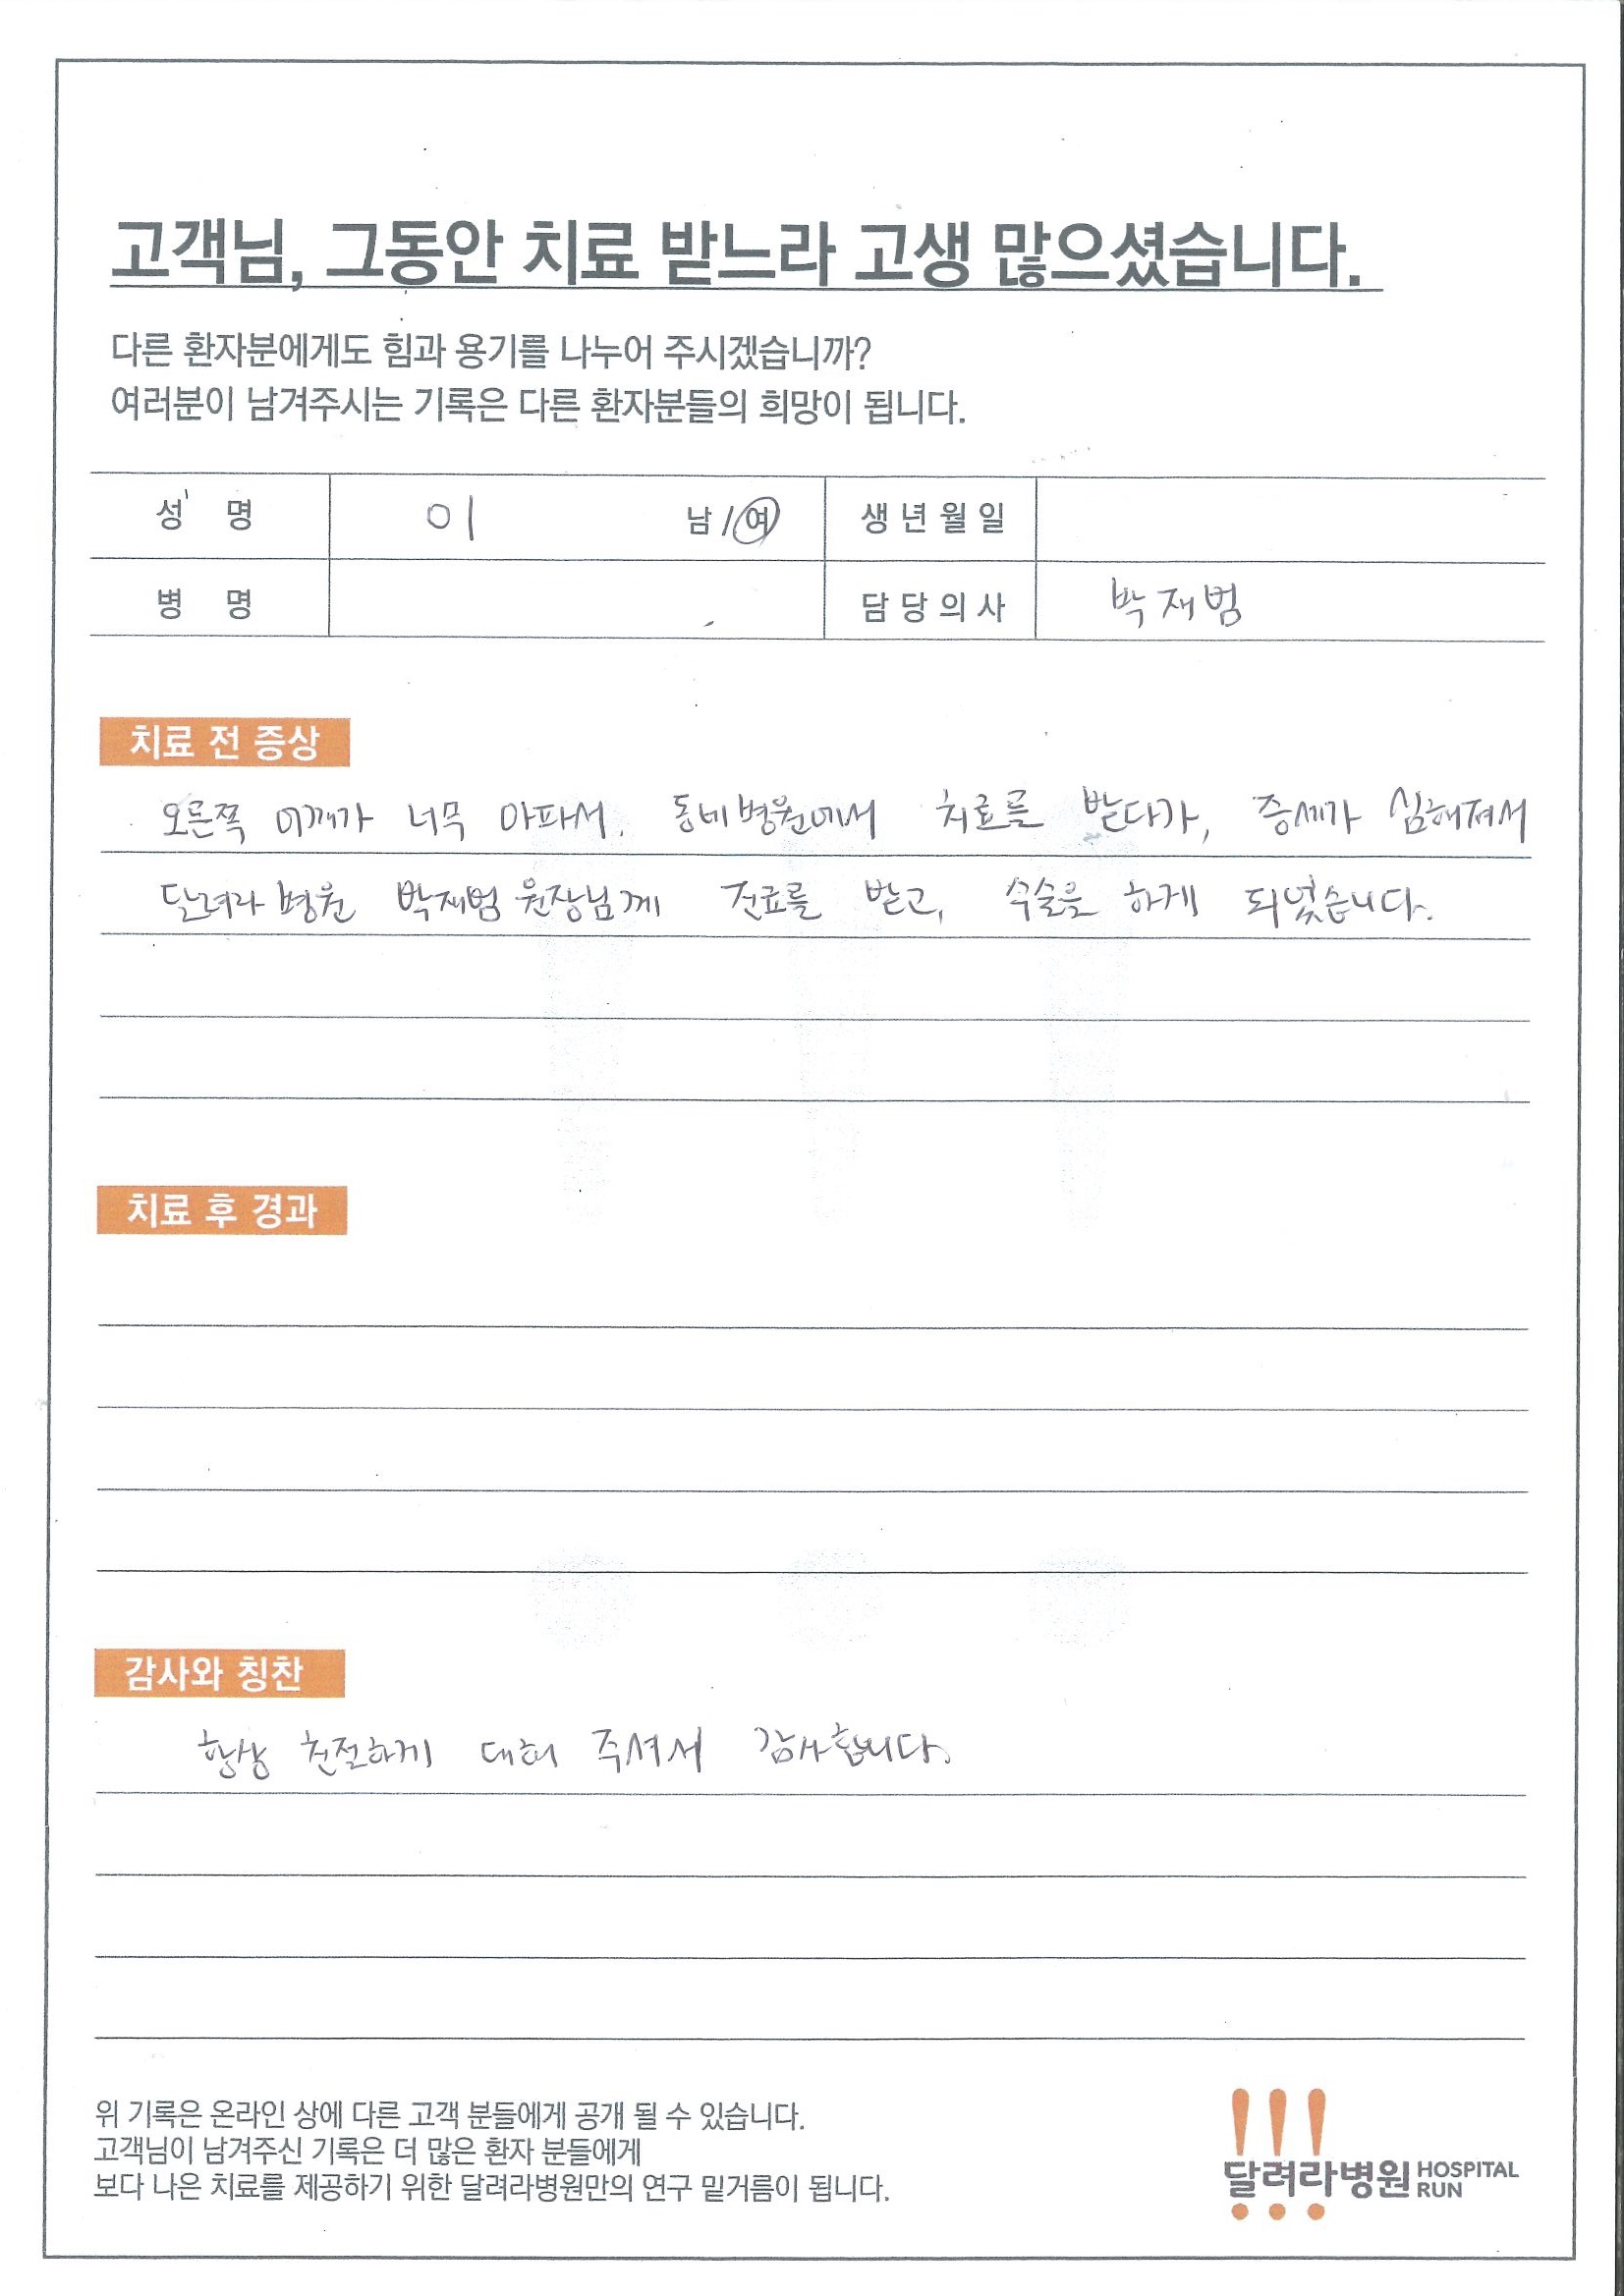 고객님, 그동안 치료 받느라 고생 많으셨습니다.
다른 환자분에게도 힘과 용기를 나누어 주시겠습니까?
여러분이 남겨주시는 기록은 다른 환자분들의 희망이 됩니다.
성 명 이 남 / 여 생년월일
병 명 담당의사 박재범
치료 전 증상
오른쪽 어깨가 너무 아파서. 동네병원에서 치료를 받다가, 증세가 심해져서
달려라 병원 박재범 원장님께 진료를 받고, 수술을 하게 되었습니다.
치료 후 경과
감사와 칭찬
항상 친절하게 대해 주셔서 감사합니다.
위 기록은 온라인 상에 다른 고객 분들에게 공개 될 수 있습니다.
고객님이 남겨주신 기록은 더 많은 환자 분들에게
보다 나은 치료를 제공하기 위한 달려라병원만의 연구 밑거름이 됩니다.
달려라병원 HOSPITAL RUN